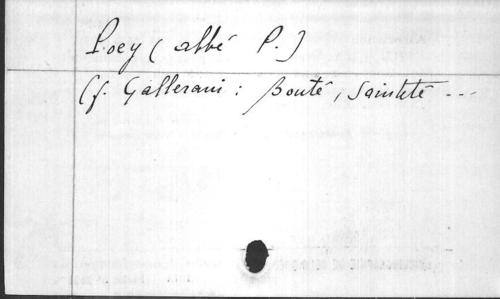 Poey (abbé P.)
Cf. Gallerani : Bonté, Sainteté ---